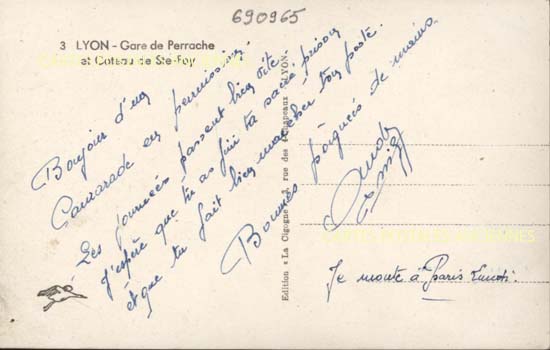 690965
3 LYON - Gare de Perrache
et Coteau de Ste-Foy
Bonjour d'un
Camarade en permission.
Les journées passent bien vite.
J'espère que tu as fini ta sacrée prison
et que tu fait bien marcher ton poste.
Bonnes poignées de mains.
Edition « La Cigogne » 3, rue des 4 Chapeaux LYON.
CARTES POSTALES ANCIENNES
Je monte à Paris Lundi.